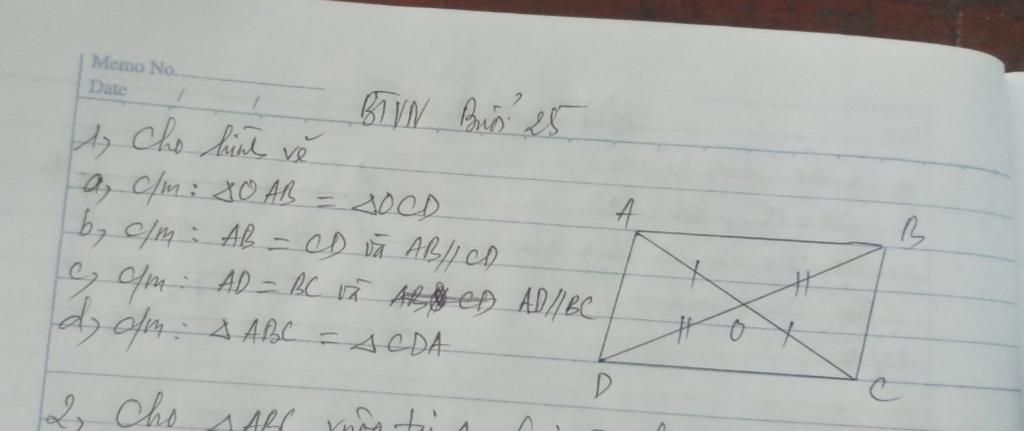 Memo No.
Date / /
BTVN Buổi 25
1, Cho hình vẽ
a, c/m: ΔOAB = ΔOCD
b, c/m: AB = CD và AB//CD
c, c/m: AD = BC và AD//BC
d, c/m: ΔABC = ΔCDA
A
B
O
D
C
2, Cho ΔABC vuông tại